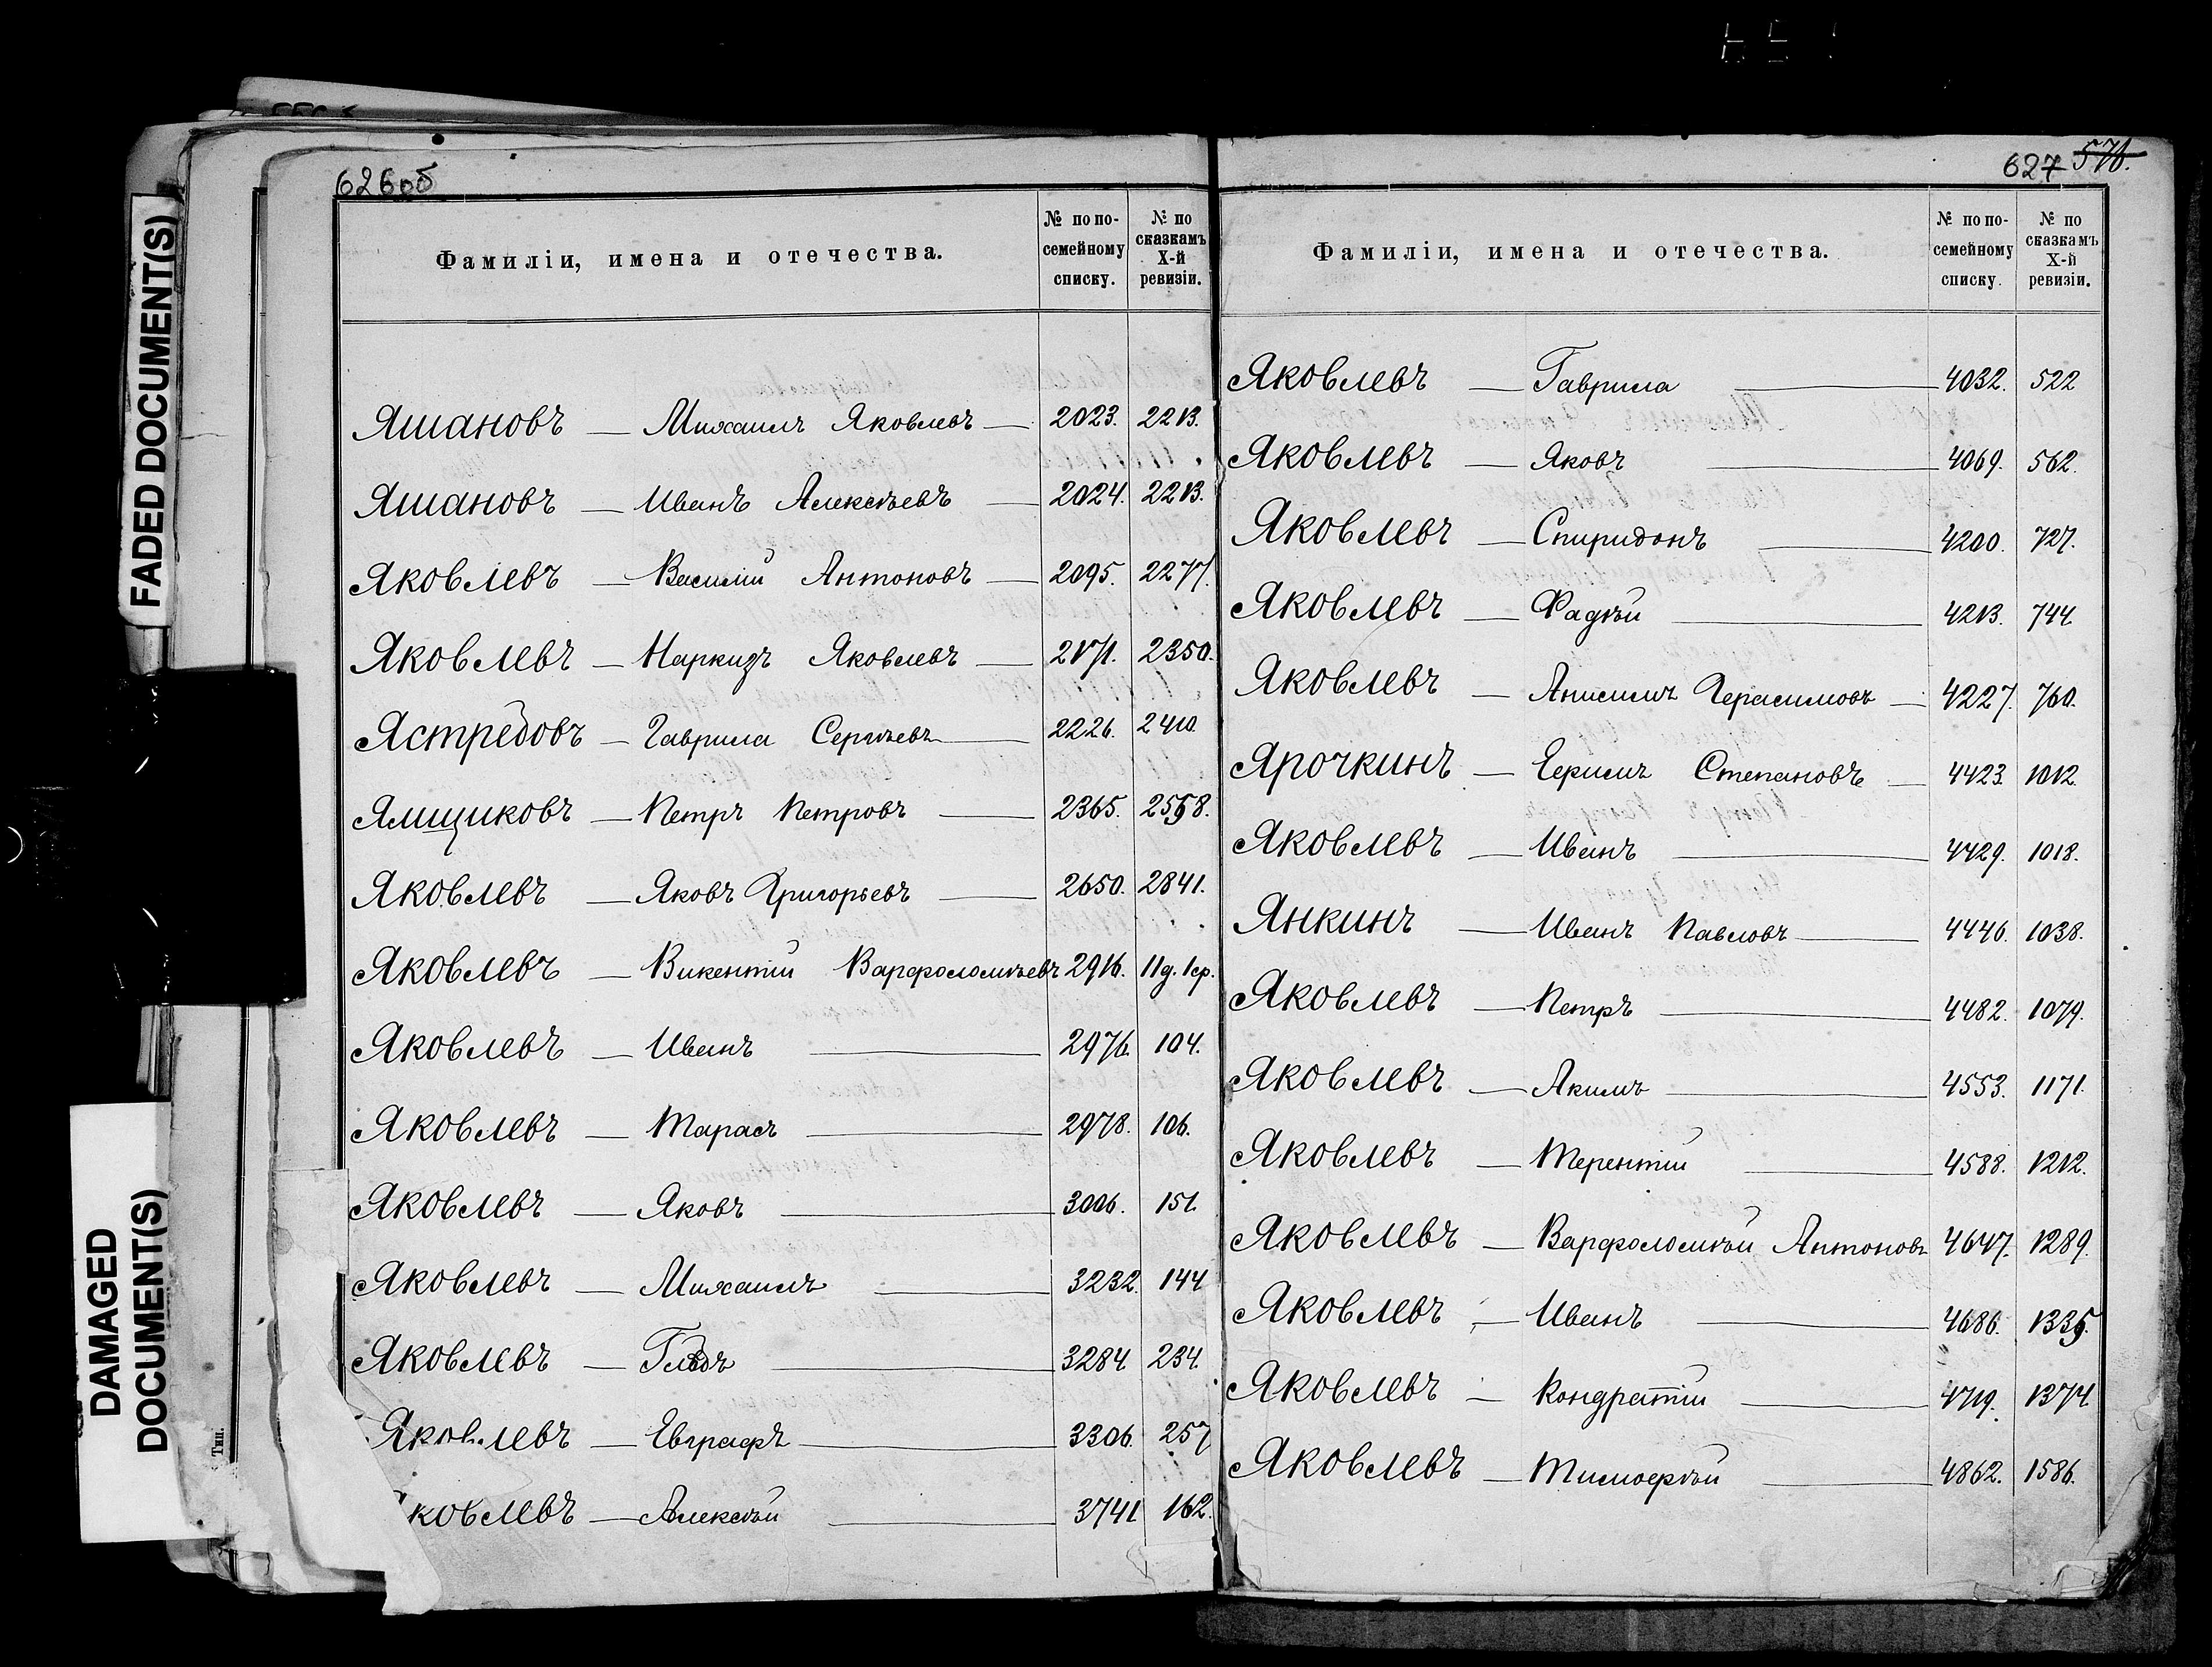 626об
Фамиліи, имена и отечества.
№ по по-
семейному
списку.
№ по
сказкамъ
X-й
ревизіи.
Яшановъ — Михаилъ Яковлевъ — 2023. 2213.
Яшановъ — Иванъ Алексѣевъ — 2024. 2213.
Яковлевъ — Василій Антоновъ — 2095. 2277.
Яковлевъ — Наркизъ Яковлевъ — 2171. 2350.
Ястребовъ — Гаврила Сергѣевъ — 2226. 2410.
Ямщиковъ — Петръ Петровъ — 2365. 2558.
Яковлевъ — Яковъ Григорьевъ — 2650. 2841.
Яковлевъ — Викентій Варфоломѣевъ 2916. 11д. 1ср.
Яковлевъ — Иванъ — 2976. 104.
Яковлевъ — Тарасъ — 2978. 106.
Яковлевъ — Яковъ — 3006. 151.
Яковлевъ — Михаилъ — 3232. 144
Яковлевъ — Глѣбъ — 3284 234.
Яковлевъ — Евграфъ — 3306. 257
ковлевъ — Алексѣй — 3741 162.
627 576.
Фамиліи, имена и отечества.
№ по по-
семейному
списку.
№ по
сказкамъ
X-й
ревизіи.
Яковлевъ — Гаврила — 4032. 522
Яковлевъ — Яковъ — 4069. 562.
Яковлевъ — Спиридонъ — 4200. 727.
Яковлевъ — Фадѣй — 4213. 744
Яковлевъ — Анисимъ Герасимовъ — 4227. 760.
Ярочкинъ — Ефимъ Степановъ — 4423. 1012.
Яковлевъ — Иванъ — 4429. 1018.
Янкинъ — Иванъ Павловъ — 4446. 1038.
Яковлевъ — Петръ — 4482. 1079.
Яковлевъ — Акимъ — 4553. 1171.
Яковлевъ — Терентій — 4588. 1212.
Яковлевъ — Варфоломѣй Антоновъ 4647. 1289.
Яковлевъ — Иванъ — 4686. 1335.
Яковлевъ — Кондратій — 4719. 1374
Яковлевъ — Тимофѣй — 4862. 1586.
FADED DOCUMENT(S)
DAMAGED
DOCUMENT(S)
Тип.